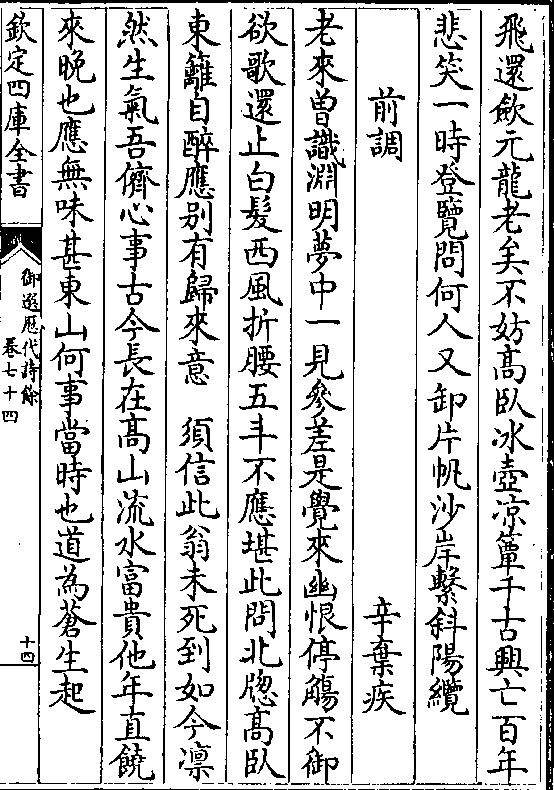 飛還歛元龍老矣不妨髙臥冰壺凉簟千古興亡百年
悲笑一時登覽問何人又卸片帆沙岸繫斜陽纜
前調　辛棄疾
老來曽識淵明夢中一見參差是覺來幽恨停觴不御
欲歌還止白髮西風折腰五斗不應堪此問北牕髙臥
東籬自醉應别有歸來意　須信此翁未死到如今凛
然生氣吾儕心事古今長在髙山流水富貴他年直饒
來晚也應無味甚東山何事當時也道為蒼生起
欽定四庫全書
御選歴代詩餘
卷七十四
十四